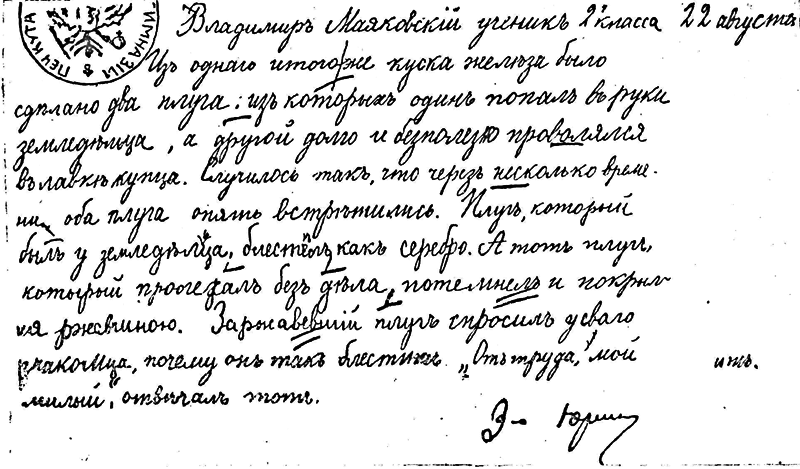 ГИМНАЗІИ
Владимиръ Маяковскій ученикъ 2го класса 22 августъ
Изъ однаго итогоже куска желѣза было
сдѣлано два плуга: изъ которыхъ одинъ попалъ въ руки
земледѣлца, а другой долго и безполезно провалялся
въ лавкѣ купца. Случилось такъ, что черезъ несколько време-
ни оба плуга опять встрѣтились. Плугъ, который
былъ у земледѣлца, блестѣлъ какъ серебро. А тотъ плугъ,
который проогежалъ безъ дѣла, потемнелъ и покрыл-
ся ржавчиною. Заржавевшій плугъ спросилъ усваго
знакомца, почему онъ такъ блеститъ „Отъ труда, мой
милый", отвѣчалъ тотъ.